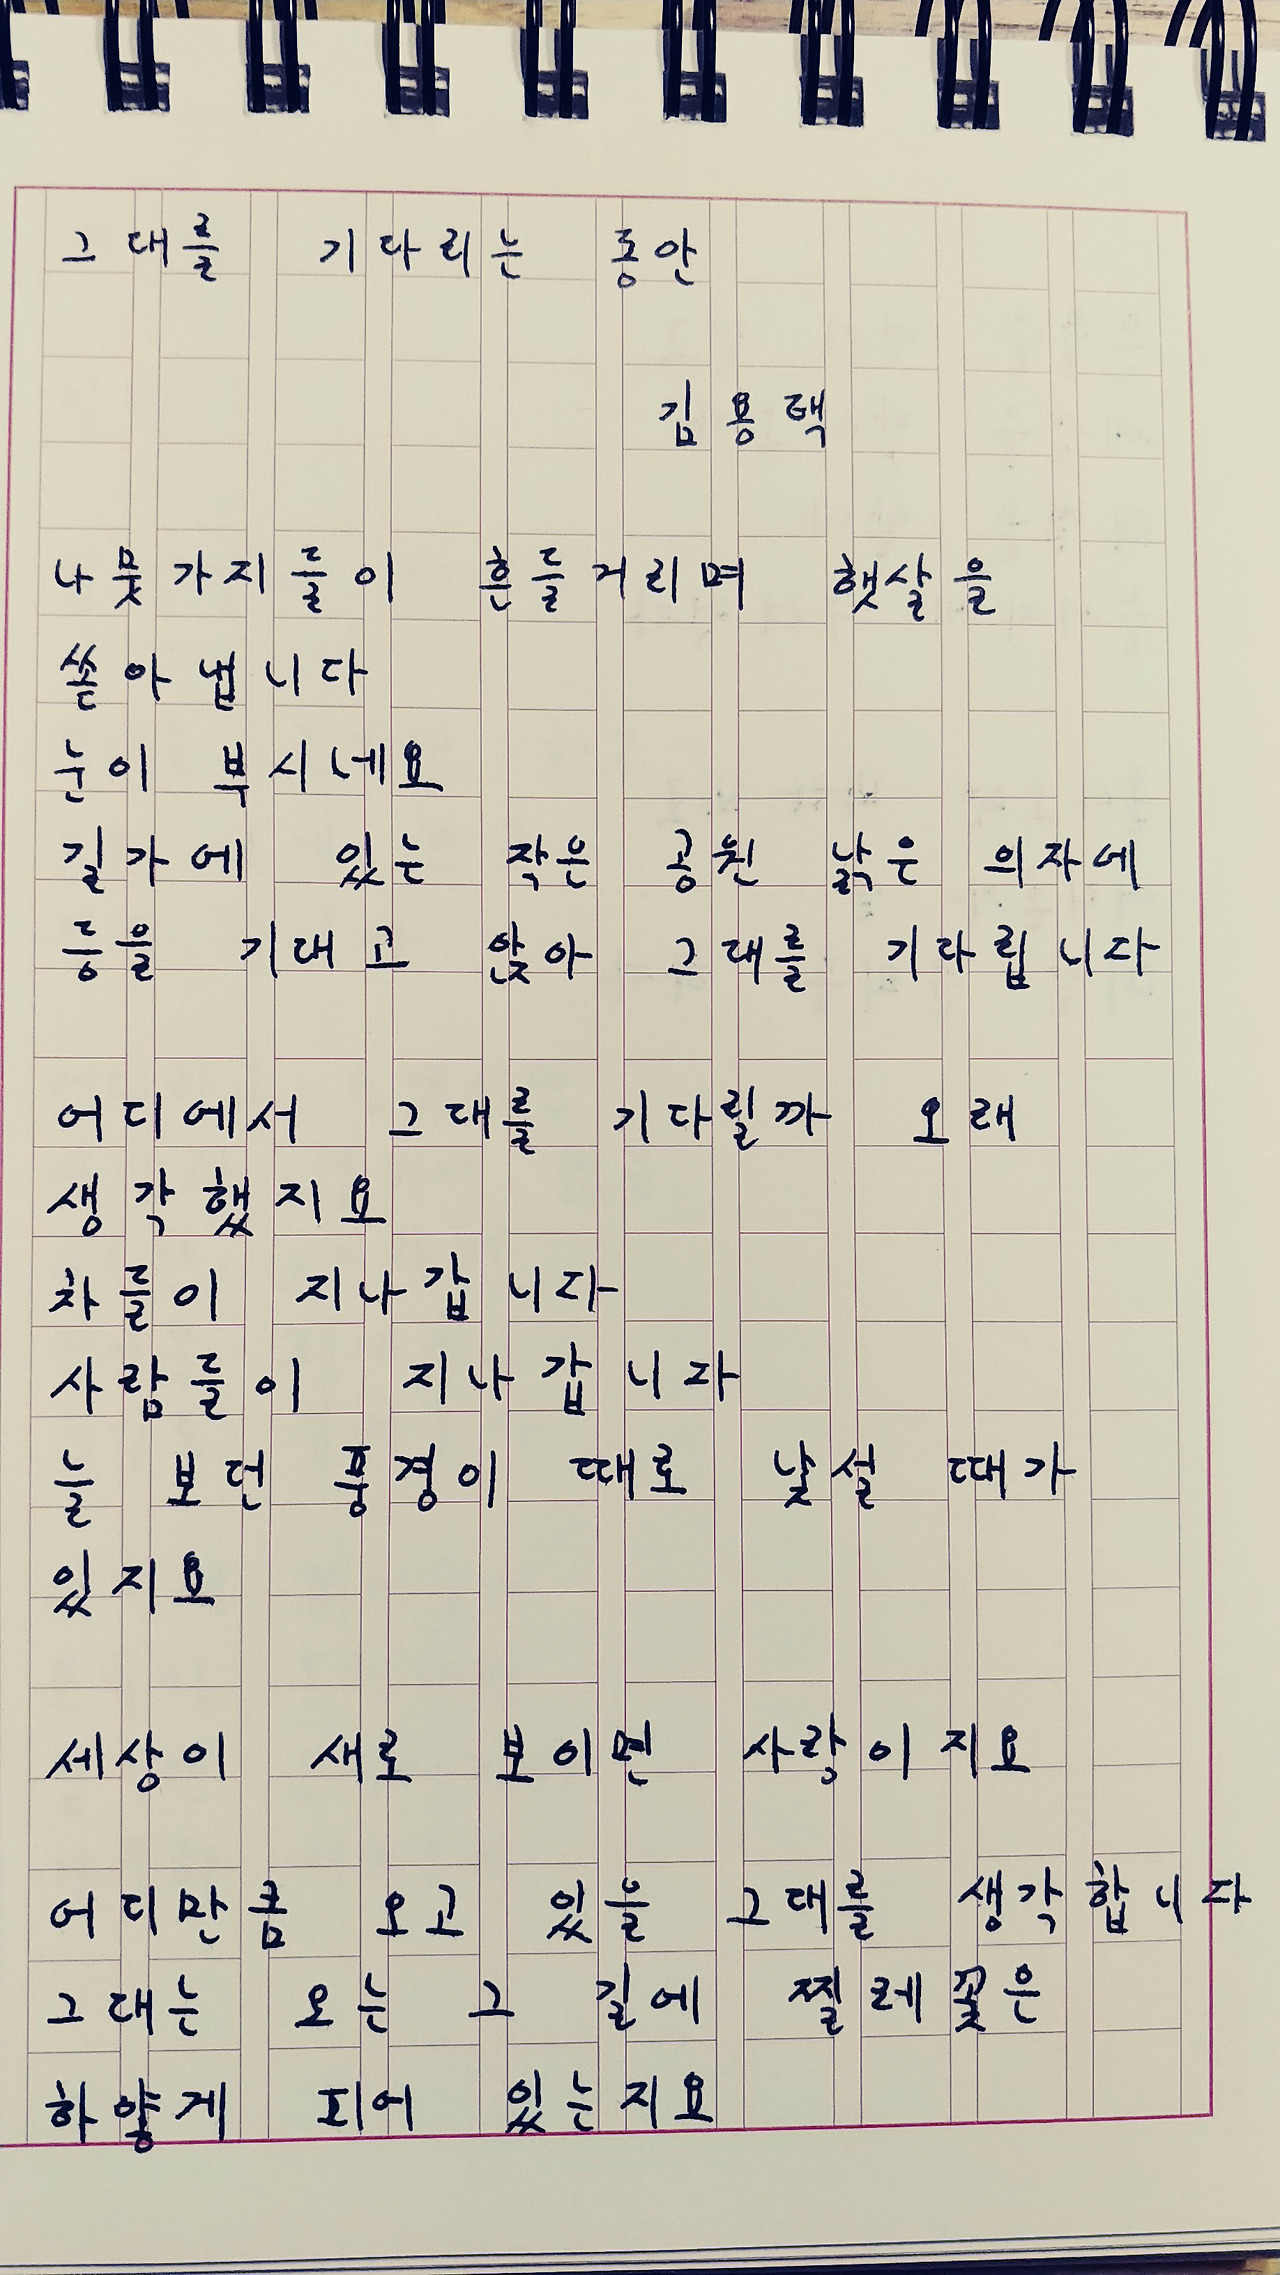 그대를 기다리는 동안
김용택
나뭇가지들이 흔들거리며 햇살을
쏟아냅니다
눈이 부시네요
길가에 있는 작은 공원 낡은 의자에
등을 기대고 앉아 그대를 기다립니다
어디에서 그대를 기다릴까 오래
생각했지요
차들이 지나갑니다
사람들이 지나갑니다
늘 보던 풍경이 때로 낯설 때가
있지요
세상이 새로 보이면 사랑이지요
어디만큼 오고 있을 그대를 생각합니다
그대는 오는 그 길에 찔레꽃은
하얗게 피어 있는지요